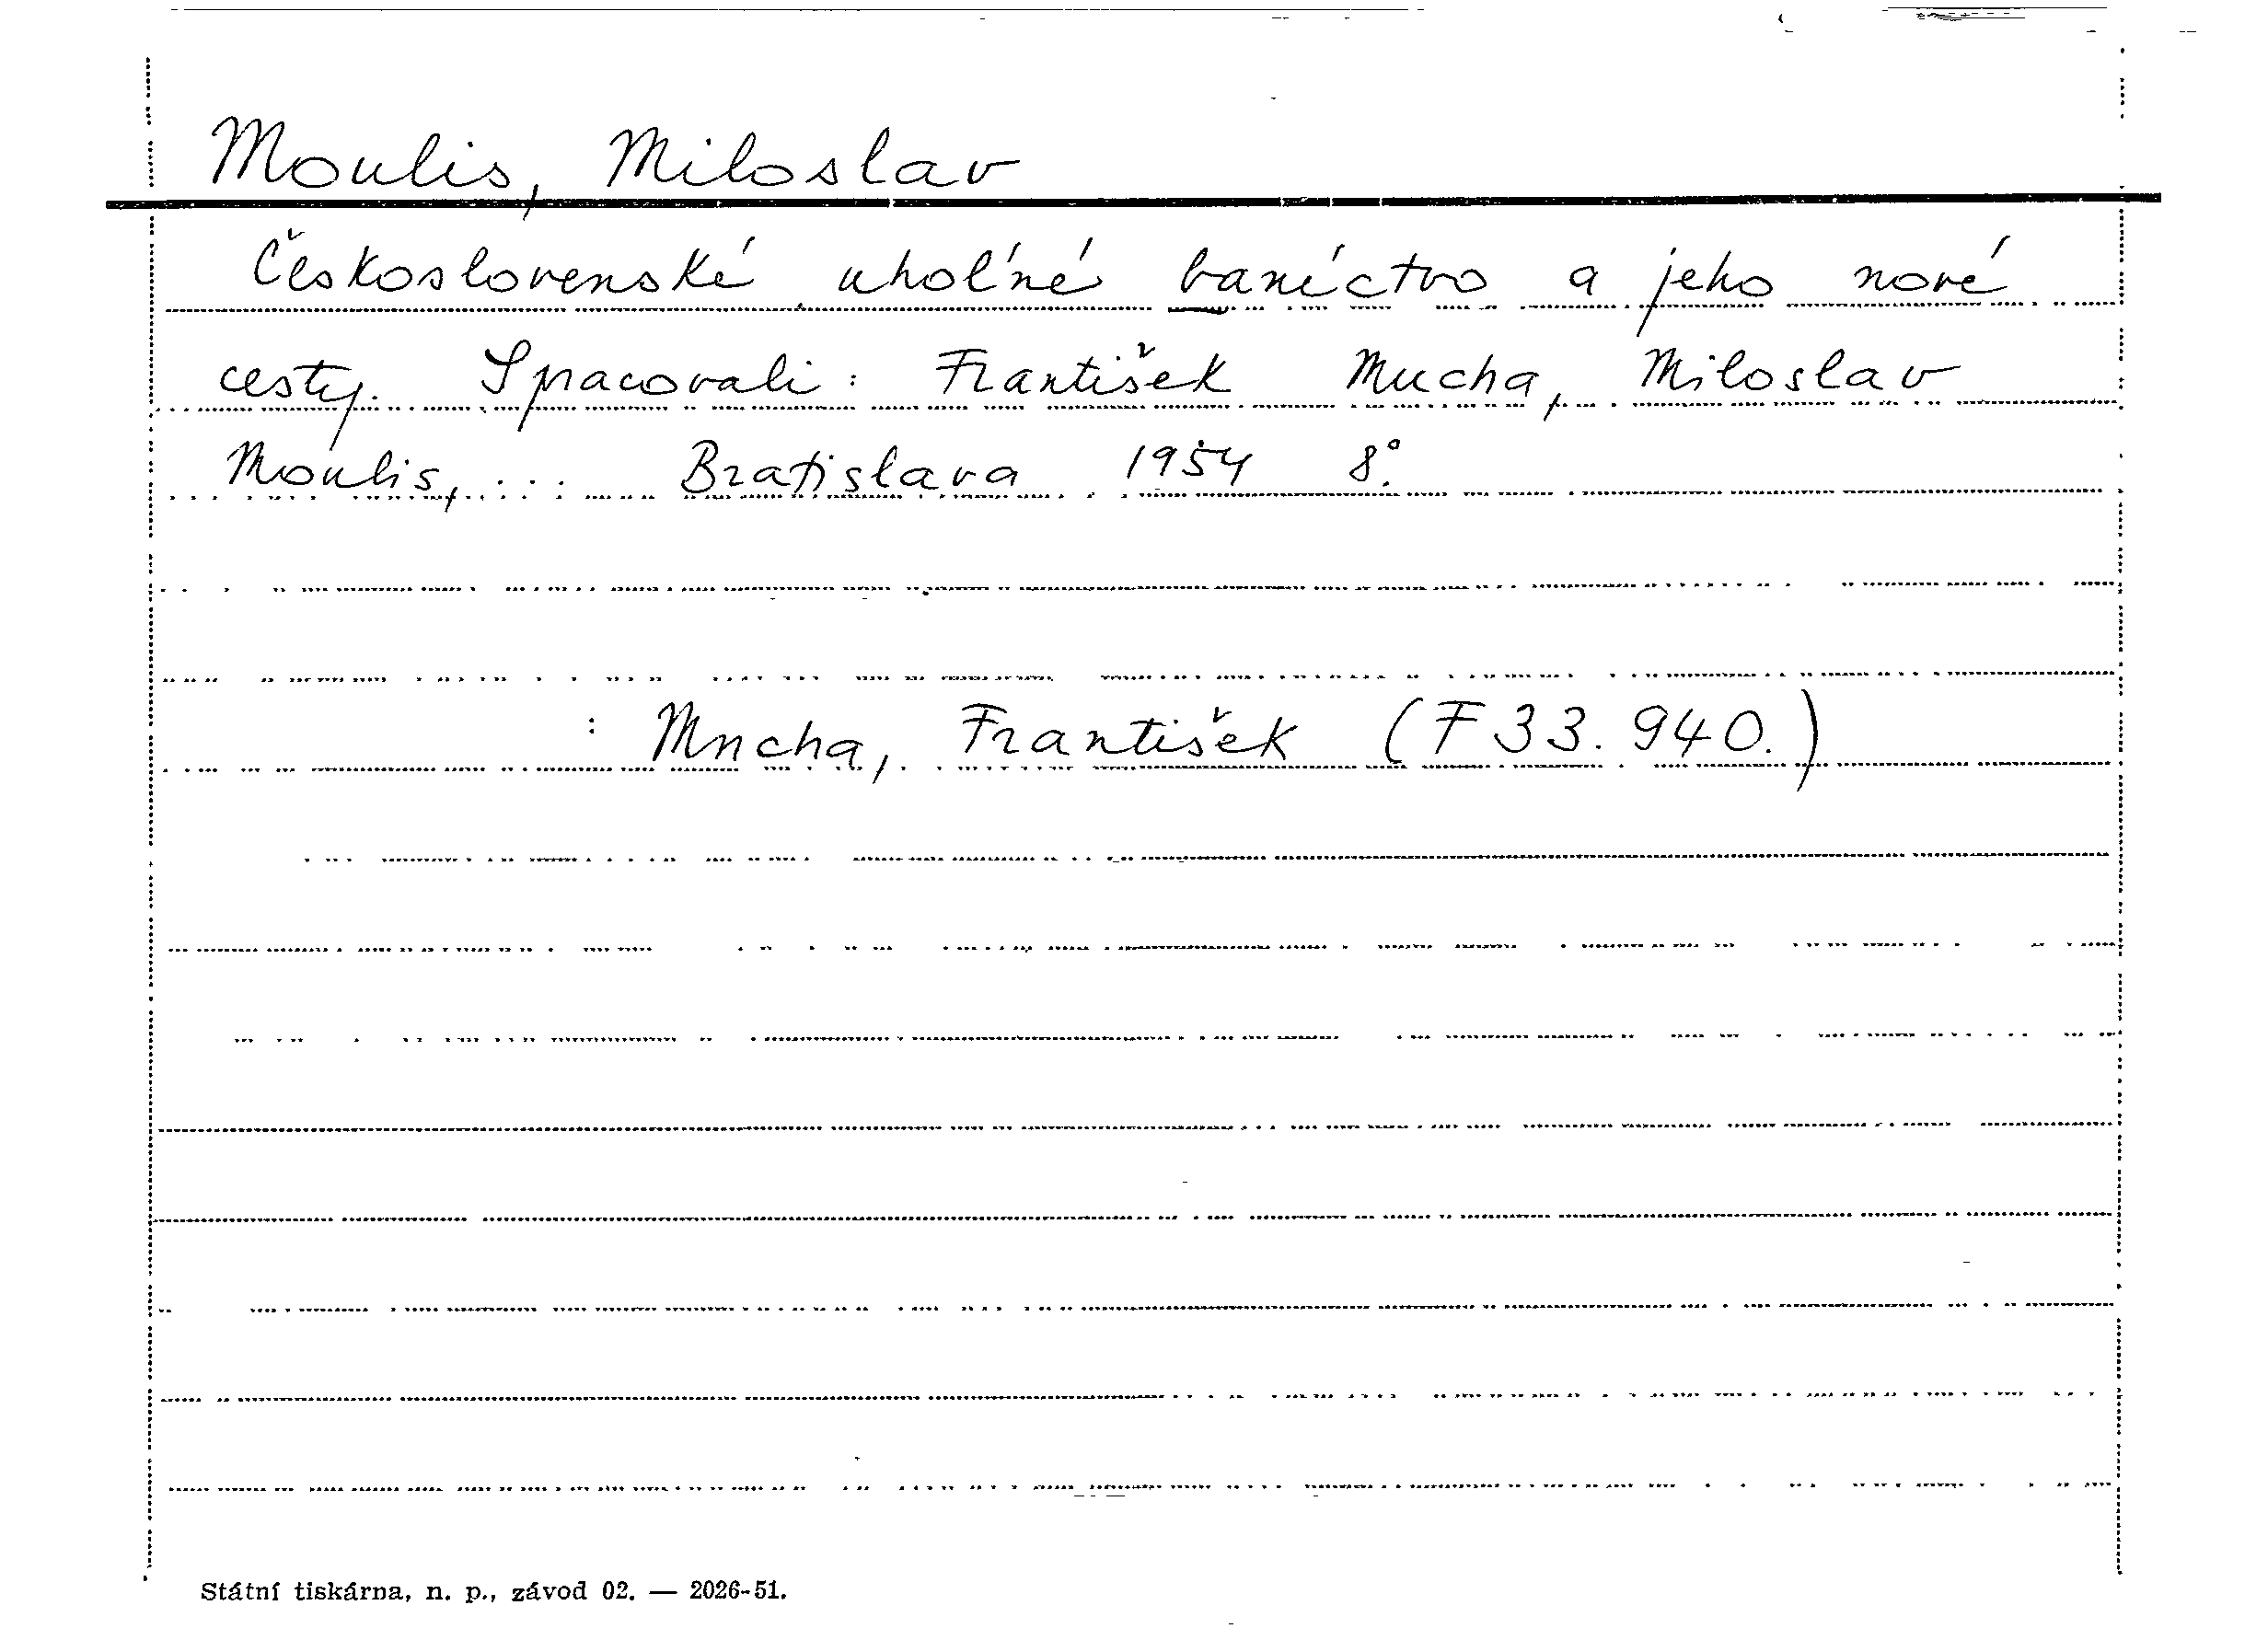 Moulis, Miloslav
Československé uhoľné baníctvo a jeho nové
cesty. Spracovali: František Mucha, Miloslav
Moulis, ... Bratislava 1954 8°.
: Mucha, František (F 33.940.)
Státní tiskárna, n. p., závod 02. — 2026-51.